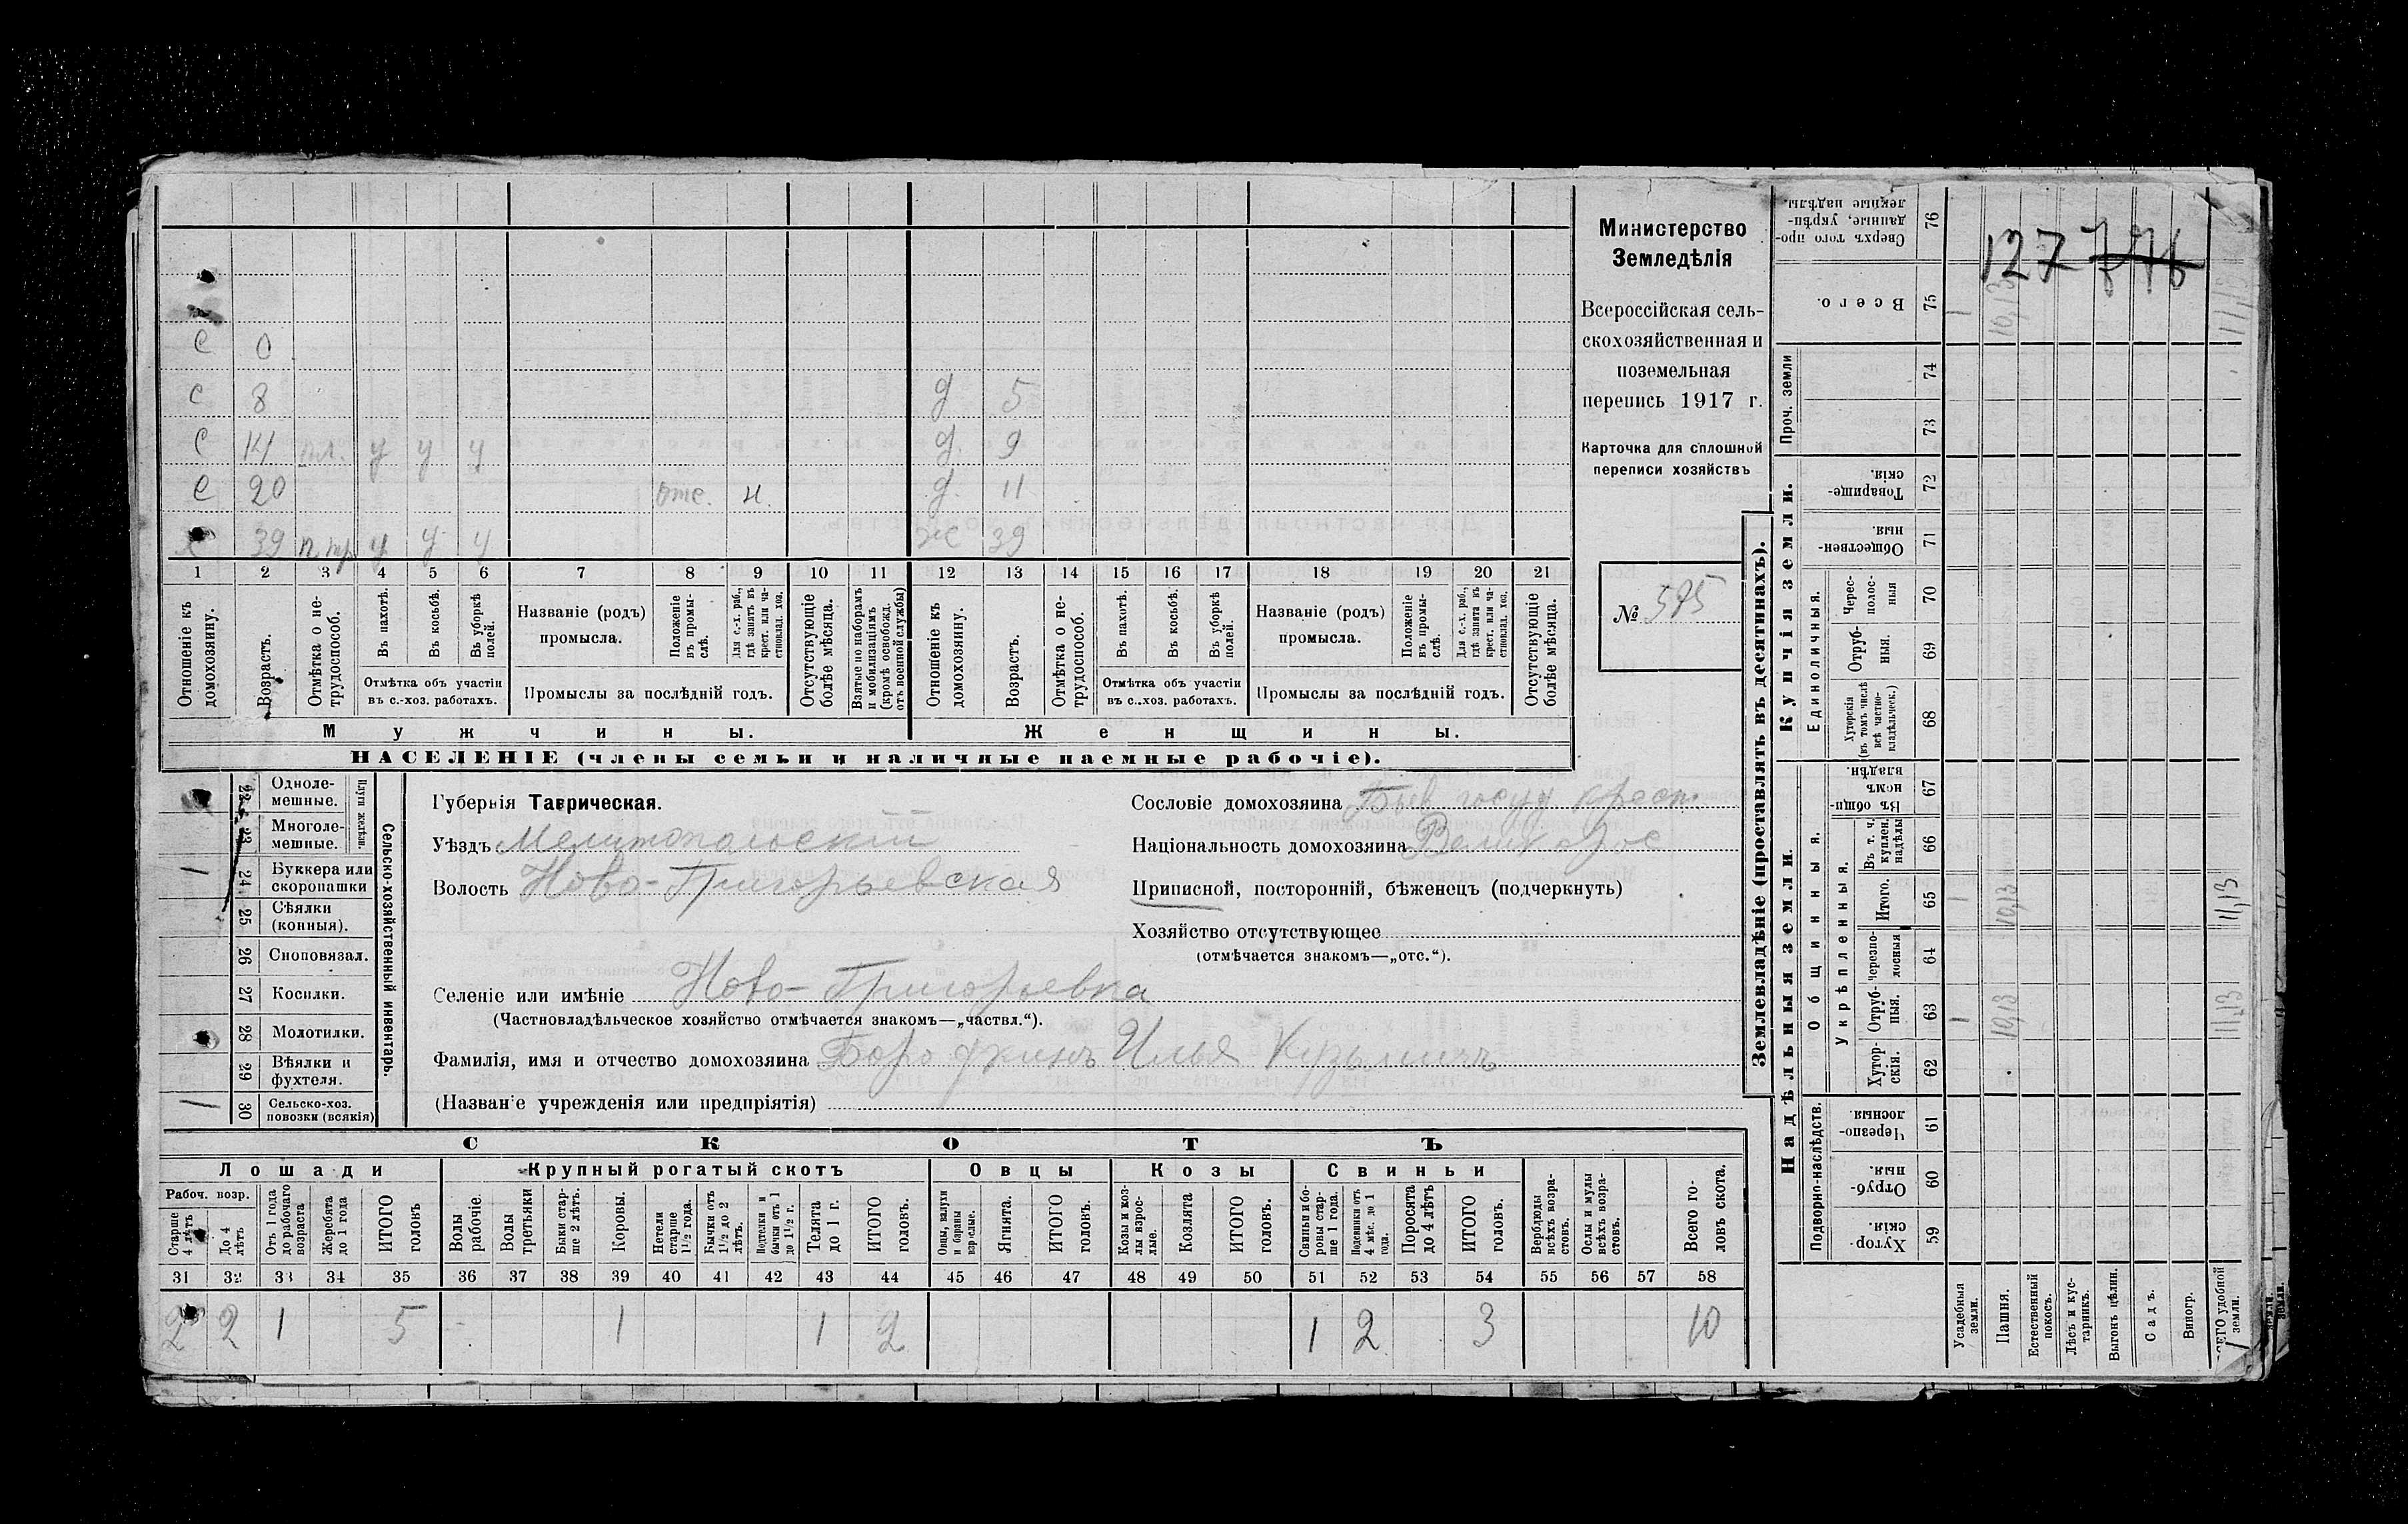 127 776
Министерство
Земледѣлія
Всероссійская сель-
скохозяйственная и
поземельная
перепись 1917 г.
Карточка для сплошной
переписи хозяйствъ
№ 575
С 0
С 8 д 5
С 14 пл. у у у д. 9
С 20 д. 11
х 39 п. тр у у у ж 39
1 2 3 4 5 6 7 8 9 10 11 12 13 14 15 16 17 18 19 20 21
Отношеніе къ домохозяину.
Возрастъ.
Отмѣтка о не-трудоспособ.
Въ пахотѣ.
Въ косьбѣ.
Въ уборкѣ полей.
Отмѣтка объ участіи
въ с.-хоз. работахъ.
Названіе (родъ)
промысла.
Положеніе въ промы-слѣ.
Для с.-х. раб., гдѣ занятъ въ крест. или ча-стновлад. хоз.
Промыслы за послѣдній годъ.
Отсутствующіе болѣе мѣсяца.
Взятые по наборамъ и мобилизаціямъ (кромѣ освобожд. отъ военной службы)
Отношеніе къ домохозяину.
Возрастъ.
Отмѣтка о не-трудоспособ.
Въ пахотѣ.
Въ косьбѣ.
Въ уборкѣ полей.
Отмѣтка объ участіи
въ с.-хоз. работахъ.
Названіе (родъ)
промысла.
Положеніе въ промы-слѣ.
Для с.-х. раб., гдѣ занята въ крест. или ча-стновлад. хоз.
Промыслы за послѣдній годъ.
Отсутствующіе болѣе мѣсяца.
Мужчины. Женщины.
НАСЕЛЕНІЕ (члены семьи и наличные наемные рабочіе).
Сельско-хозяйственный инвентарь.
Плуги желѣзн.
22 Одноле-мешные.
23 Многоле-мешные.
1 24 Буккера или скоропашки
25 Сѣялки (конныя).
26 Сноповязал.
27 Косилки.
28 Молотилки.
29 Вѣялки и фухтеля.
1 30 Сельско-хоз. повозки (всякія)
Губернія Таврическая.
Уѣздъ Мелитопольскій
Волость Ново-Григорьевская
Селеніе или имѣніе Ново-Григорьевка
(Частновладѣльческое хозяйство отмѣчается знакомъ—„частвл.“).
Фамилія, имя и отчество домохозяина Бородкинъ Илья Кузьмичъ
(Названіе учрежденія или предпріятія)
Сословіе домохозяина Быв госуд крест.
Національность домохозяина Великорос
Приписной, посторонній, бѣженецъ (подчеркнуть)
Хозяйство отсутствующее
(отмѣчается знакомъ—„отс.“).
СКОТЪ
Лошади Крупный рогатый скотъ Овцы Козы Свиньи
Рабоч. возр.
Старше 4 лѣтъ
До 4 лѣтъ
Отъ 1 года до рабочаго возраста
Жеребята до 1 года
ИТОГО головъ
Волы рабочіе
Волы третьяки
Быки стар-ше 2 лѣтъ.
Коровы.
Нетели старше 1 1/2 года.
Бычки отъ 1 1/2 до 2 лѣтъ.
Подтелки и бычки отъ 1 до 1 1/2 г.
Телята до 1 г.
ИТОГО головъ.
Овцы, валухи и бараны взрослые.
Ягнята.
ИТОГО головъ.
Козы и коз-лы взрос-лые.
Козлята
ИТОГО головъ.
Свиньи и бо-ровы стар-ше 1 года.
Подсвинки отъ 4 мѣс. до 1 года.
Поросята до 4 лѣтъ
ИТОГО головъ.
Верблюды всѣхъ возра-стовъ.
Ослы и мулы всѣхъ возра-стовъ.
Всего го-ловъ скота.
31 32 33 34 35 36 37 38 39 40 41 42 43 44 45 46 47 48 49 50 51 52 53 54 55 56 57 58
2 2 1 5 1 1 2 1 2 3 10
Землевладѣніе (проставлять въ десятинахъ).
Надѣльныя земли. Купчія земли. Проч. земли
Подворно-наслѣдств. Общинныя. Единоличныя.
Укрѣпленныя.
Хутор-скія. 59
Отруб-ныя. 60
Черезпо-лосныя 61
Хутор-скія. 62
Отруб-ныя. 63
Черезпо-лосныя 64
Итого. 65
Въ т. ч. куплен. надѣлы 66
Въ общи-номъ владѣн. 67
Хуторскія (въ томъ числѣ всѣ частно-владѣльческ.) 68
Отруб-ныя. 69
Черес-полос-ныя 70
Обществен-ныя 71
Товарище-скія. 72
73
74
Всего. 75
Сверхъ того про-данные, укрѣп-ленные надѣлы. 76
Усадебныя земли. 1 1 1
Пашня. 10,13 10,13 10,13
Естественный покосъ.
Лѣсъ и кус-тарникъ.
Выгонъ цѣлин.
Садъ.
Виногр.
удобной земли. 11,13 11,13 11,13